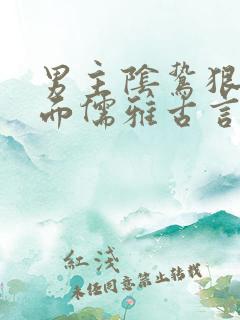 男主陰鷙狠
而儒雅古言
紅淺
未经同意禁止转载